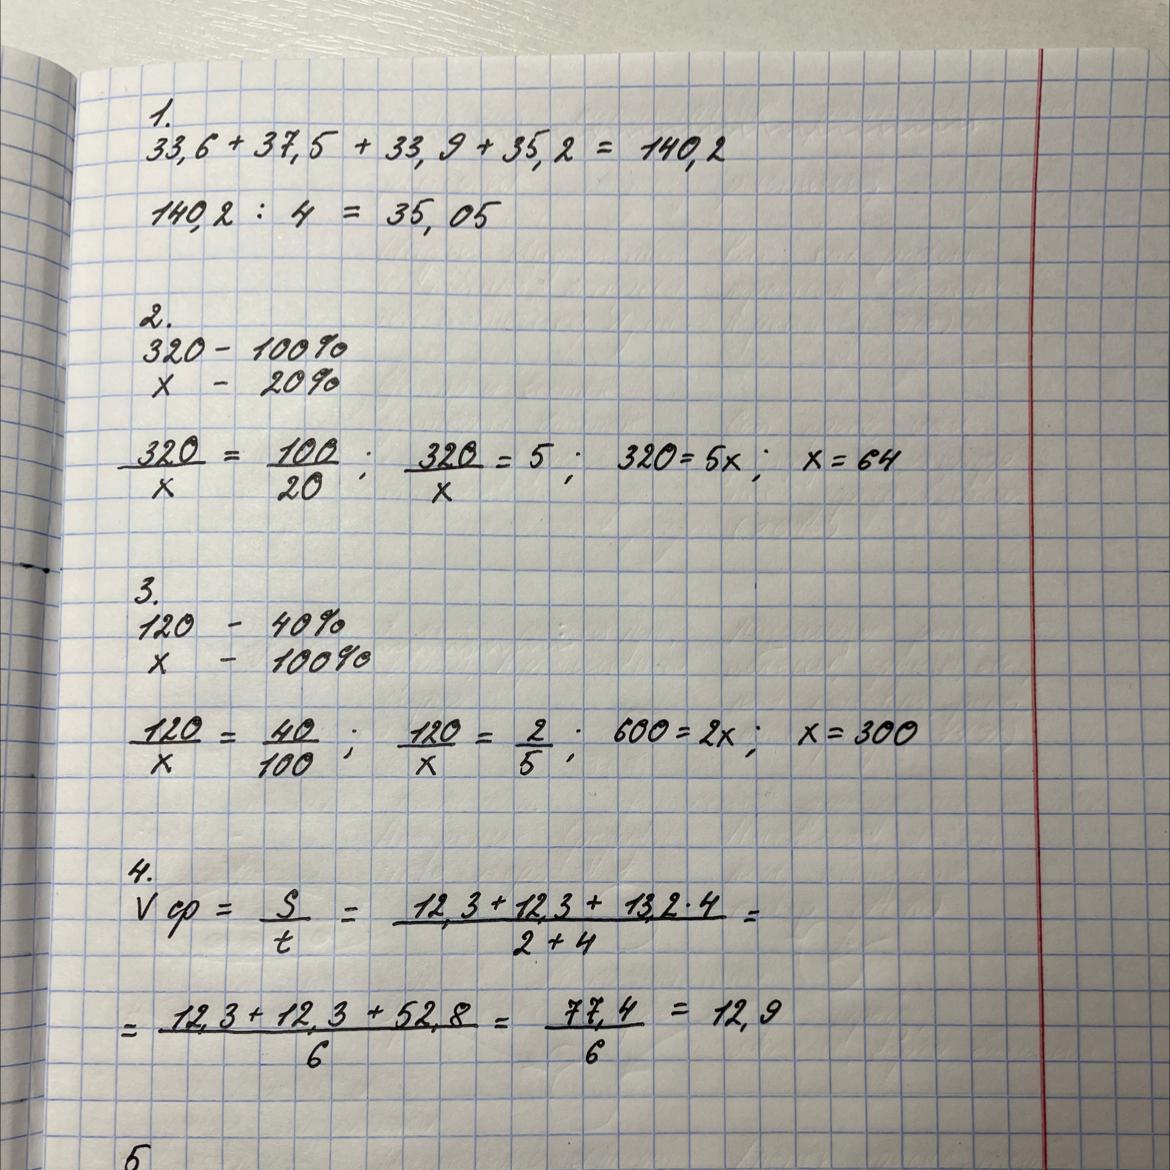 1.
33,6 + 37,5 + 33,9 + 35,2 = 140,2
140,2 : 4 = 35,05
2.
320 - 100%
x - 20%
320/x = 100/20 ; 320/x = 5 ; 320 = 5x ; x = 64
3.
120 - 40%
x - 100%
120/x = 40/100 ; 120/x = 2/5 ; 600 = 2x ; x = 300
4.
V ср = S/t = 12,3 + 12,3 + 13,2 · 4 / 2 + 4 =
= 12,3 + 12,3 + 52,8 / 6 = 77,4 / 6 = 12,9
5